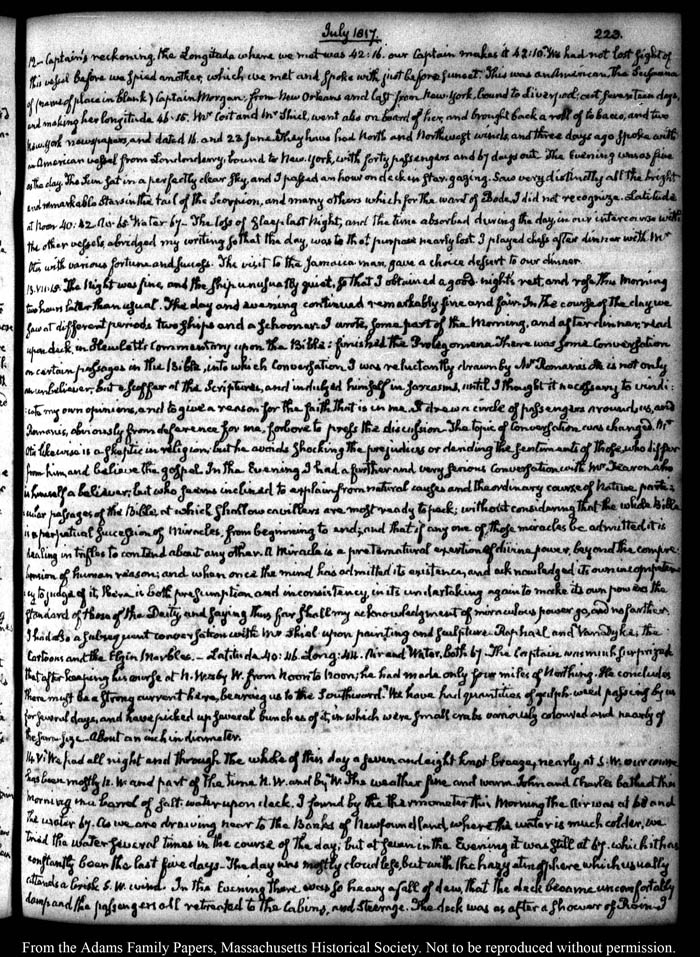 July 1817.
223.
12 - Captain's reckoning the Longitude where we met was 42:16. our Captain makes it 42:10. We had not lost sight of
this vessel before we spied another, which we met and spoke with just before sunset. This was an American, The Susanna
of (name of place in blank) Captain Morgan; from New Orleans and last from New-York, bound to Liverpool; out seventeen days,
and making her longitude 46-15. Mr Cort and Mr Shiel, went also on board of her, and brought back a roll of tobacco, and two
New-York newspapers, and dated 16. and 22 June. They have had North and Northwest winds, and three days ago spoke with
an American vessel from Londonderry, bound to New-York, with forty passengers and 67 days out. The Evening was as fine
as the day. The Sun set in a perfectly clear sky, and I passed an hour on deck in Star-gazing. Saw very distinctly all the bright
and remarkable Stars in the tail of the Scorpion, and many others which for the want of Bode, I did not recognize. Latitude
at Noon 40:42. Air 68. Water 67. The loss of sleep last Night, and the time absorbed during the day, in our intercourse with
the other vessels, abridged my writing so that the day, was to that purpose nearly lost. I played chess after dinner with Mr
Otis with various fortune and success. The visit to the Jamaica man, gave a choice desert to our dinner.
13. VII:15. The Night was fine, and the ship unusually quiet, so that I obtained a good night's rest, and rose this Morning
two hours later than usual. The day and evening continued remarkably fine and fair. In the course of the day, we
saw at different periods two ships and a schooner. I wrote, some part of the Morning, and after dinner, read
upon deck, in Hewlett's Commentary upon the Bible: finished the Prolegomena. There was some Conversation
on certain passages in the Bible, into which Conversation I was reluctantly drawn by Mr Romanas. He is not only
an unbeliever, but a scoffer at the Scriptures, and indulged himself in sarcasms, until I thought it necessary to vindi-
cate my own opinions, and to give a reason for the faith that is in me. It drew a circle of passengers around us, and
Romanas, obviously from deference for me, forbore to press the discussion. The topic of Conversation was changed. Mr
Otis likewise is a skeptic in religion, but he avoids shocking the prejudices or deriding the sentiments of those, who differ
from him, and believe the gospel. In the Evening I had a further and very serious Conversation with Mr who
is himself a believer, but who seems inclined to explain from natural causes and the ordinary course of Nature, partic-
ular passages of the Bible, at which shallow cavillers are most ready to peck; without considering that the whole Bible
is a perpetual succession of Miracles, from beginning to end; and that if any one of those miracles be admitted it is
dealing in trifles to contend about any other. A Miracle is a preternatural exertion of divine power, beyond the compre-
hension of human reason; and when once the mind has admitted its existence, and acknowledged its own incompeten-
cy to judge of it, there is both presumption and inconsistency, in its undertaking again to make its own powers the
standard of those of the Deity and saying thus far shall my acknowledgment of miraculous power go, and no farther.
I had also a subsequent conversation with Mr Shiel upon painting and sculpture. Raphael and Vandyke, the
Cartoons and the Elgin Marbles. - Latitude 40:46. Long: 44. Air and Water, both 67. The Captain was much surprized
that after keeping his course at N.W. by W. from Noon to Noon, he had made only four miles of Northing. He concludes
there must be a strong current here, bearing us to the Southward. We have had quantities of gulph-weed passing by us
for several days, and have picked up several bunches of it, in which were small crabs variously coloured and nearly of
the same size. About an inch in diameter.
14. V: We had all night and through the whole of this day a seven and eight knot breeze, nearly at S.W. our course
has been mostly N.W. and part of the time N.W. and by W. The weather fine and warm. John and Charles bathed this
morning in a barrel of salt-water upon deck. I found by the thermometer this Morning the Air was at 68 and
the water 67. As we are drawing near to the Banks of Newfoundland, where the water is much colder, we
tried the water several times in the course of the day; but at seven in the Evening it was still at 67. which it has
constantly been the last five days. The day was mostly cloudless, but with the hazy atmosphere which usually
attends a brisk S.W. wind. In the Evening there was so heavy a fall of dew, that the deck became uncomfortably
damp and the passengers all retreated to the Cabins, and Steerage. The deck was as after a shower of Rain. I
From the Adams Family Papers, Massachusetts Historical Society. Not to be reproduced without permission.